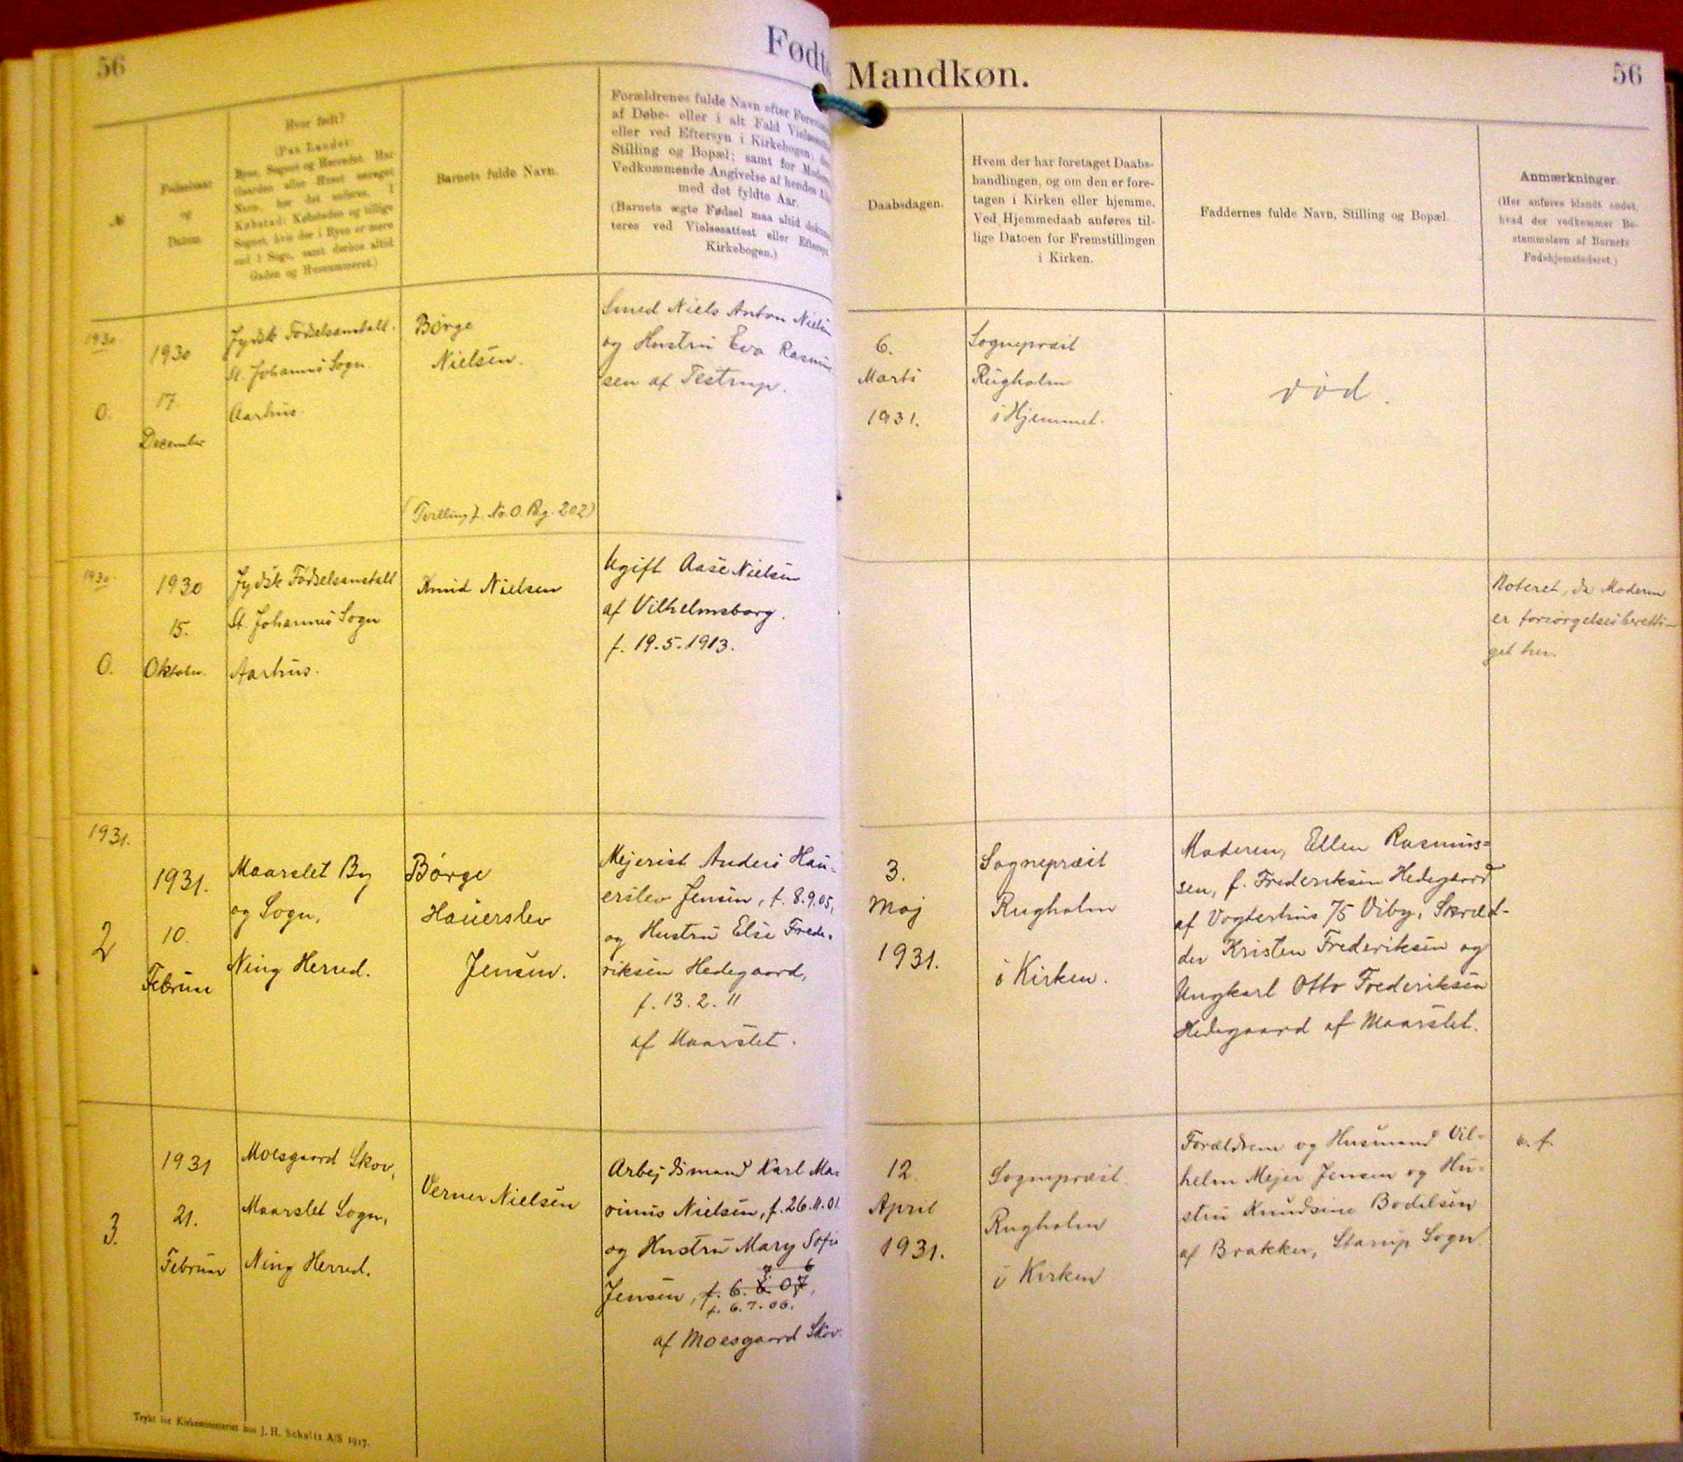 56
Fødte
Mandkøn.
56
№
Fødselsaar
og
Datum
Hvor født?
(Paa Landet:
Byen, Sognet og Herredet. Har
Gaarden eller Huset særeget
Navn, bør det anføres. I
Købstad: Købstaden og tillige
Sognet, hvis der i Byen er mere
end 1 Sogn, samt derhos altid
Gaden og Husnummeret.)
Barnets fulde Navn.
Forældrenes fulde Navn efter
af Døbe- eller i alt Fald
eller ved Eftersyn i Kirkebogen,
Stilling og Bopæl; samt for
Vedkommende Angivelse af hendes
med det fyldte Aar.
(Barnets ægte Fødsel maa altid
teres ved Vielsesattest eller Eftersyn
Kirkebogen.)
Daabsdagen.
Hvem der har foretaget Daabs-
handlingen, og om den er fore-
tagen i Kirken eller hjemme.
Ved Hjemmedaab anføres til-
lige Datoen for Fremstillingen
i Kirken.
Faddernes fulde Navn, Stilling og Bopæl.
Anmærkninger.
(Her anføres blandt andet,
hvad der vedkommer Be-
stemmelsen af Barnets
Fødehjemstedsret.)
1930
0.
1930
17.
December
Jydsk Fødselsanstalt.
St. Johannis Sogn
Aarhus.
Børge
Nielsen.
(Tvilling f. No. 0. Pag. 202)
Smed Niels Anton Nielsen
og Hustru Eva Rasmus
sen af Testrup.
6.
Marts
1931.
Sognepræst
Rugholm
i Hjemmet.
død.
1930
0.
1930
15.
Oktober.
Jydsk Fødselsanstalt
St. Johannis Sogn
Aarhus.
Knud Nielsen
Ugift Aase Nielsen
af Vilhelmsborg.
f. 19.5.1913.
Noteret, da Moderen
er forsørgelsesberetti-
get her.
1931.
2
1931.
10.
Februar
Maarslet By
og Sogn,
Ning Herred.
Børge
Hauerslev
Jensen.
Mejerist Anders Hau-
erslev Jensen, f. 8.9.05,
og Hustru Else Frede-
riksen Hedegaard,
f. 13.2.11
af Maarslet.
3.
Maj
1931.
Sognepræst
Rugholm
i Kirken.
Moderen, Ellen Rasmus-
sen, f. Frederiksen Hedegaard
af Vogterhus 75 Viby, Skræd-
der Kristen Frederiksen og
Ungkarl Otto Frederiksen
Hedegaard af Maarslet.
3.
1931
21.
Februar
Moesgaard Skov,
Maarslet Sogn,
Ning Herred.
Verner Nielsen
Arbejdsmand Karl Ma-
rinus Nielsen, f. 26.11.01
og Hustru Mary Sofie
7 6
Jensen, f. 6. 8. 07,
f. 6.7.06.
af Moesgaard Skov.
12.
April
1931.
Sognepræst
Rugholm
i Kirken
Forældrene og Husmand Vil-
helm Mejer Jensen og Hu-
stru Knudsine Bodilsen
af Brakker, Starup Sogn.
v. f.
Trykt for Kirkeministeriet hos J. H. Schultz A/S 1917.